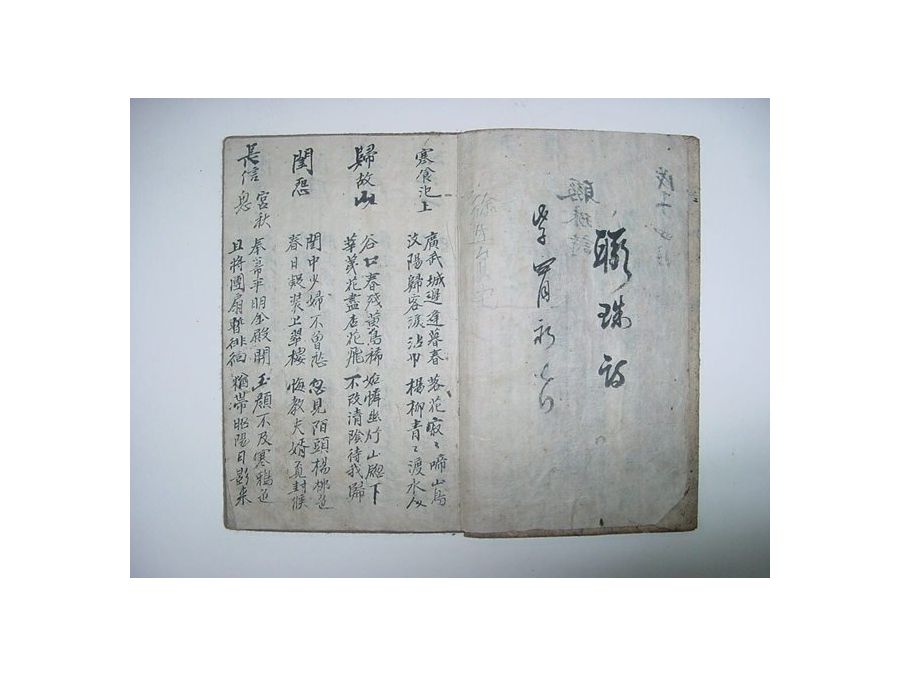 聯珠詩
寒食池上
廣武城邊逢暮春 落花寂〻啼山鳥
汶陽歸客淚沾巾 楊柳青〻渡水人
歸故山
谷口春殘黃鳥稀 始憐幽竹山窓下
花盡杏花飛 不改清陰待我歸
閨怨
閨中少婦不曾愁 忽見陌頭楊柳色
春日凝裝上翠樓 悔教夫婿覓封侯
長信宮秋
奉箒平明金殿開 玉顔不及寒鴉色
且將團扇暫徘徊 猶帶昭陽日影來